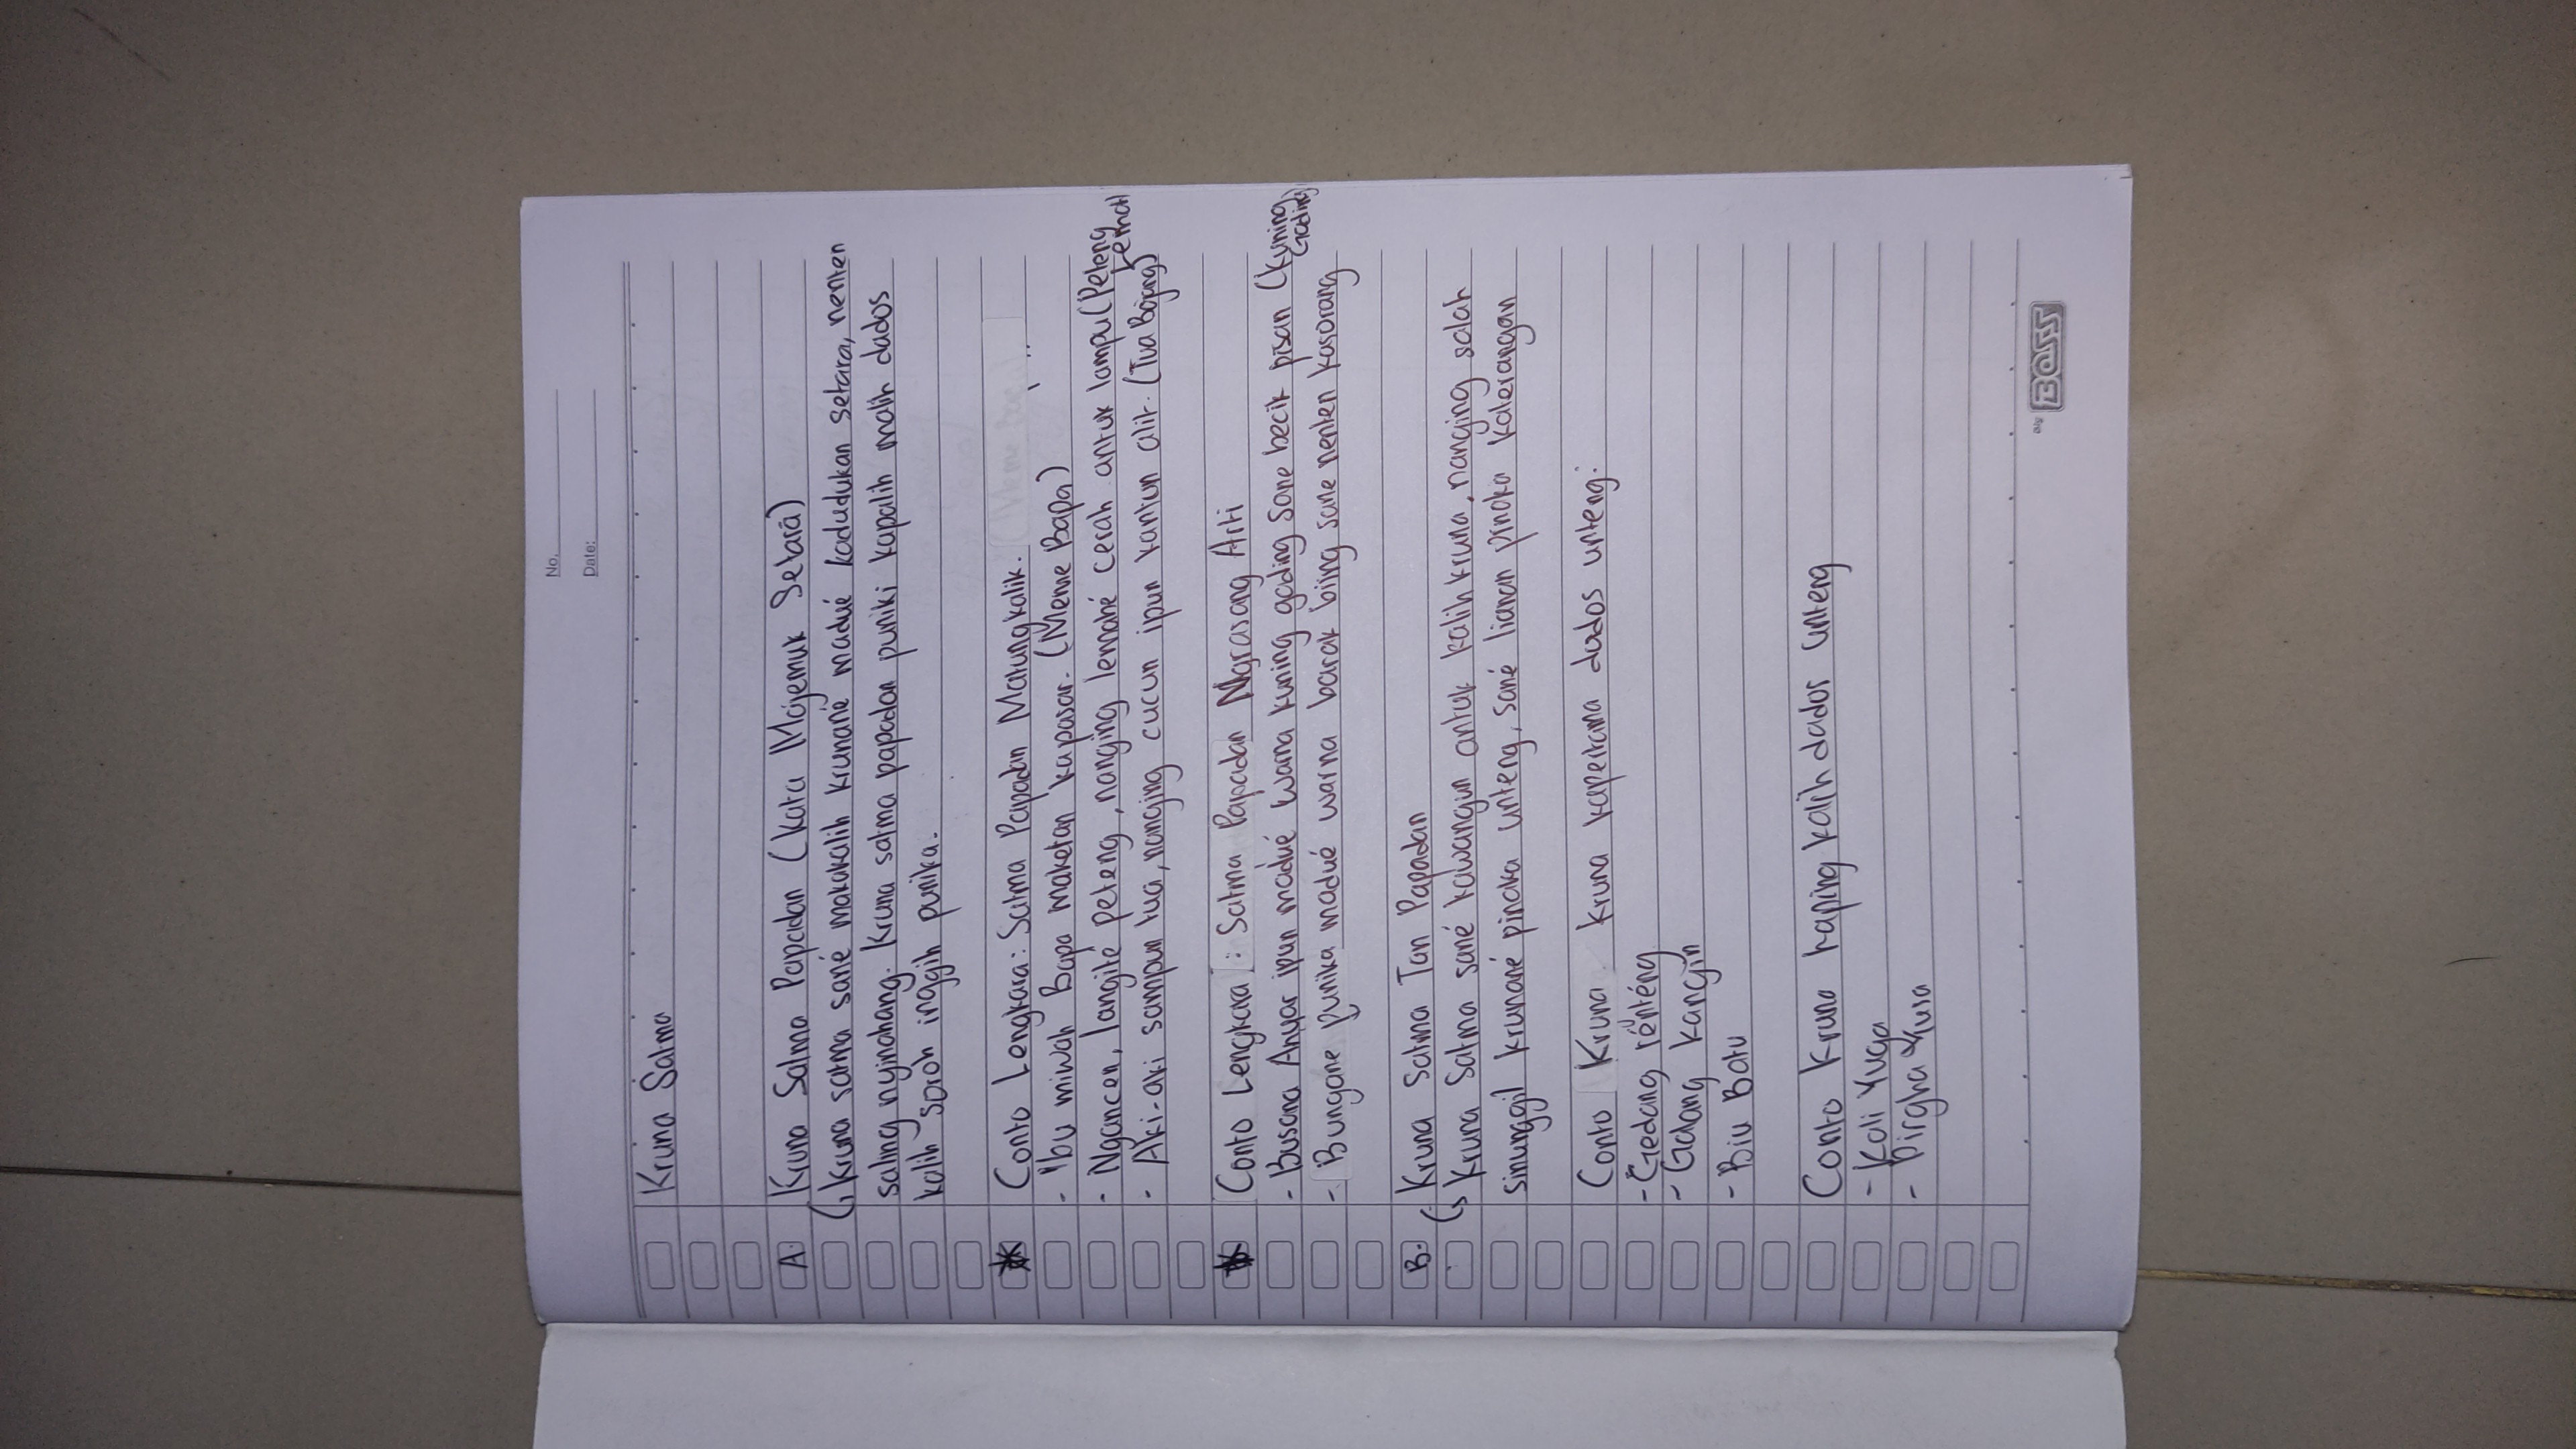 No.
Date:
Kruna Satma
A. Kruna Satma Papadan (Kata Majemuk Setara)
Kruna satma sané makakalih krunané madué kadudukan setara, nenten
saling nyinahang. Kruna satma papadan puniki kapalih malih dados
kalih soroh inggih punika.
Conto Lengkara: Satma Papadan Matungkalik.
- Ibu miwah Bapa maketan kapasar. (Meme Bapa)
- Ngancen, langité peteng, nanging lemahé cerah antuk lampu (Peteng
Lemah)
- Aki-aki sampun tua, nanging cucun ipun kantun alit. (Tua Bajang)
Conto Lengkara : Satma Papadan Ngrasang Arti
- Busana Anyar ipun madué warna kuning gading sane becik pisan (Kuning
Gading)
- Bungane punika madué warna barak biing sane nenten kasorang
B. Kruna Satma Tan Papadan
Kruna Satma sané kawangun antuk kalih kruna, nanging salah
sinunggil krunané pinaka unteng, sané lianan pinaka katerangan
Conto Kruna kruna kapertama dados unteng:
- Gedang rénténg
- Galang kangin
- Biu Batu
Conto Kruna kaping kalih dados unteng
- Kali Yuga
- Dirgha Yusa
Big BOSS